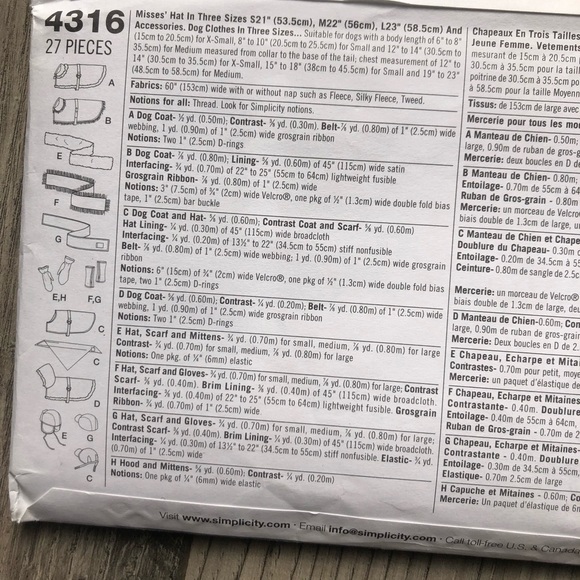 4316
27 PIECES
Misses' Hat In Three Sizes S21" (53.5cm), M22" (56cm), L23" (58.5cm) And
Accessories. Dog Clothes In Three Sizes... Suitable for dogs with a body length of 6" to 8"
(15cm to 20.5cm) for X-Small, 8" to 10" (20.5cm to 25.5cm) for Small and 12" to 14" (30.5cm to
35.5cm) for Medium measured from collar to the base of the tail; chest measurement of 12" to
14" (30.5cm to 35.5cm) for X-Small, 15" to 18" (38cm to 45.5cm) for Small and 19" to 23"
(48.5cm to 58.5cm) for Medium.
Fabrics: 60" (153cm) wide with or without nap such as Fleece, Silky Fleece, Tweed.
Notions for all: Thread. Look for Simplicity notions.
A Dog Coat- yd. (0.50m); Contrast- yd. (0.30m). Belt- yd. (0.80m) of 1" (2.5cm) wide
webbing, 1 yd. (0.90m) of 1" (2.5cm) wide grosgrain ribbon
Notions: Two 1" (2.5cm) D-rings
B Dog Coat- ⅞ yd. (0.80m); Lining- yd. (0.60m) of 45" (115cm) wide satin
Interfacing- ¾ yd. (0.70m) of 22" to 25" (55cm to 64cm) lightweight fusible
Grosgrain Ribbon- ⅞ yd. (0.80m) of 1" (2.5cm) wide
Notions: 3" (7.5cm) of ¾" (2cm) wide Velcro®, one pkg of ½" (1.3cm) wide double fold bias
tape, 1" (2.5cm) bar buckle
C Dog Coat and Hat- yd. (0.60m); Contrast Coat and Scarf- yd. (0.60m)
Hat Lining- yd. (0.30m) of 45" (115cm) wide broadcloth
Interfacing- yd. (0.20m) of 13½" to 22" (34.5cm to 55cm) stiff nonfusible
Belt- ⅞ yd. (0.80m) of 1" (2.5cm) wide webbing; 1 yd. (0.90m) of 1" (2.5cm) wide grosgrain
ribbon
Notions: 6" (15cm) of ¾" (2cm) wide Velcro®, one pkg of ½" (1.3cm) wide double fold bias
tape, two 1" (2.5cm) D-rings
D Dog Coat- yd. (0.60m); Contrast- ¼ yd. (0.20m); Belt- ⅞ yd. (0.80m) of 1" (2.5cm) wide
webbing, 1 yd. (0.90m) of 1" (2.5cm) wide grosgrain ribbon
Notions: Two 1" (2.5cm) D-rings
E Hat, Scarf and Mittens- ¾ yd. (0.70m) for small, medium, ⅞ yd. (0.80m) for large
Contrast- ¾ yd. (0.70m) for small, medium, ⅞ yd. (0.80m) for large
Notions: One pkg. of ¼" (6mm) wide elastic
F Hat, Scarf and Gloves- ¾ yd. (0.70m) for small, medium, ⅞ yd. (0.80m) for large; Contrast
Scarf- yd. (0.40m). Brim Lining- yd. (0.40m) of 45" (115cm) wide broadcloth.
Interfacing- yd. (0.40m) of 22" to 25" (55cm to 64cm) lightweight fusible. Grosgrain
Ribbon- ¾ yd. (0.70m) of 1" (2.5cm) wide
G Hat, Scarf and Gloves- ¾ yd. (0.70m) for small, medium, ⅞ yd. (0.80m) for large;
Contrast Scarf- yd. (0.40m). Brim Lining- yd. (0.30m) of 45" (115cm) wide broadcloth.
Interfacing- yd. (0.30m) of 13½" to 22" (34.5cm to 55cm) stiff nonfusible. Elastic- ¾ yd.
(0.70m) of 1" (2.5cm) wide
H Hood and Mittens- yd. (0.60m); Contrast- ¼ yd. (0.20m)
Notions: One pkg of ¼" (6mm) wide elastic
A
B
E
F
G
E,H F,G
C
C
D
E G
C
Chapeaux En Trois Tailles
Jeune Femme. Vetements
mesurant de 15cm à 20.5cm
30.5cm à 35.5cm pour la taille
poitrine de 30.5cm à 35.5cm po
à 58.5cm pour la taille Moyenne
Tissus: de 153cm de large avec
Mercerie pour tous les mo
A Manteau de Chien- 0.50m;
large, 0.90m de ruban de gros-g
Mercerie: deux boucles en D de
B Manteau de Chien- 0.80m
Entoilage- 0.70m de 55cm à 64
Ruban de Gros-grain - 0.80m
Mercerie: un morceau de Velcro
biais double de 1.3cm de large, un
C Manteau de Chien et Chapea
Doublure du Chapeau- 0.30m
Entoilage- 0.20m de 34.5cm à 55
Ceinture- 0.80m de sangle de 2.5c
Mercerie: un morceau de Velcro®
biais double de 1.3cm de large, deu
D Manteau de Chien-0.60m; Con
large, 0.90m de ruban de gros-grain
Mercerie: Deux boucles en D de 2.
E Chapeau, Echarpe et Mitaine
Contrastes- 0.70m pour petit, moye
Mercerie: un paquet d'élastique de
F Chapeau, Echarpe et Mitaines
Contrastante- 0.40m. Doublure d
Entoilage- 0.40m de 55cm à 64cm,
Ruban de Gros-grain- 0.70m de 2
G Chapeau, Echarpe et Mitaines-
Contrastante - 0.40m. Doublure d
Entoilage- 0.30m de 34.5cm à 55cm,
Elastique- 0.70m 2.5cm de large
H Capuche et Mitaines - 0.60m; Con
Mercerie: Un paquet d'élastique de 6m
Visit www.simplicity.com · Email info@simplicity.com · Call toll-free U.S. & Canada